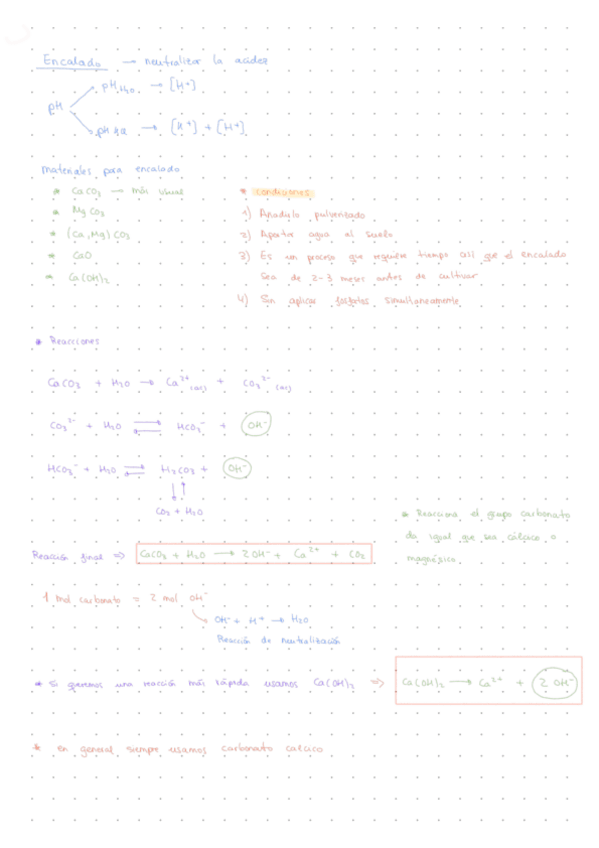 Encalado → neutralizar la acidez
pH H2O → [H+]
pH
pH → [H+] + [H+]
Materiales para encalado
* CaCO3 → más usual
* MgCO3
* (Ca, Mg) CO3
* CaO
* Ca(OH)2
* condiciones
1) Añadirlo pulverizado
2) Aportar agua al suelo
3) Es un proceso que requiere tiempo así que el encalado
sea de 2-3 meses antes de cultivar
4) Sin aplicar fosfatos simultaneamente
* Reacciones
CaCO3 + H2O → Ca2+ (aq) + CO3 2- (aq)
CO3 2- + H2O ⇌ HCO3- + OH-
HCO3- + H2O ⇌ H2CO3 + OH-
↓↑
CO2 + H2O
* Reacciona el grupo carbonato
da igual que sea cálcico o
magnésico.
Reacción final ⇒ CaCO3 + H2O → 2 OH- + Ca2+ + CO2
1 mol carbonato = 2 mol OH-
OH- + H+ → H2O
Reacción de neutralización
* Si queremos una reacción más rápida usamos Ca(OH)2 ⇒ Ca(OH)2 → Ca2+ + 2 OH-
* en general siempre usamos carbonato cálcico